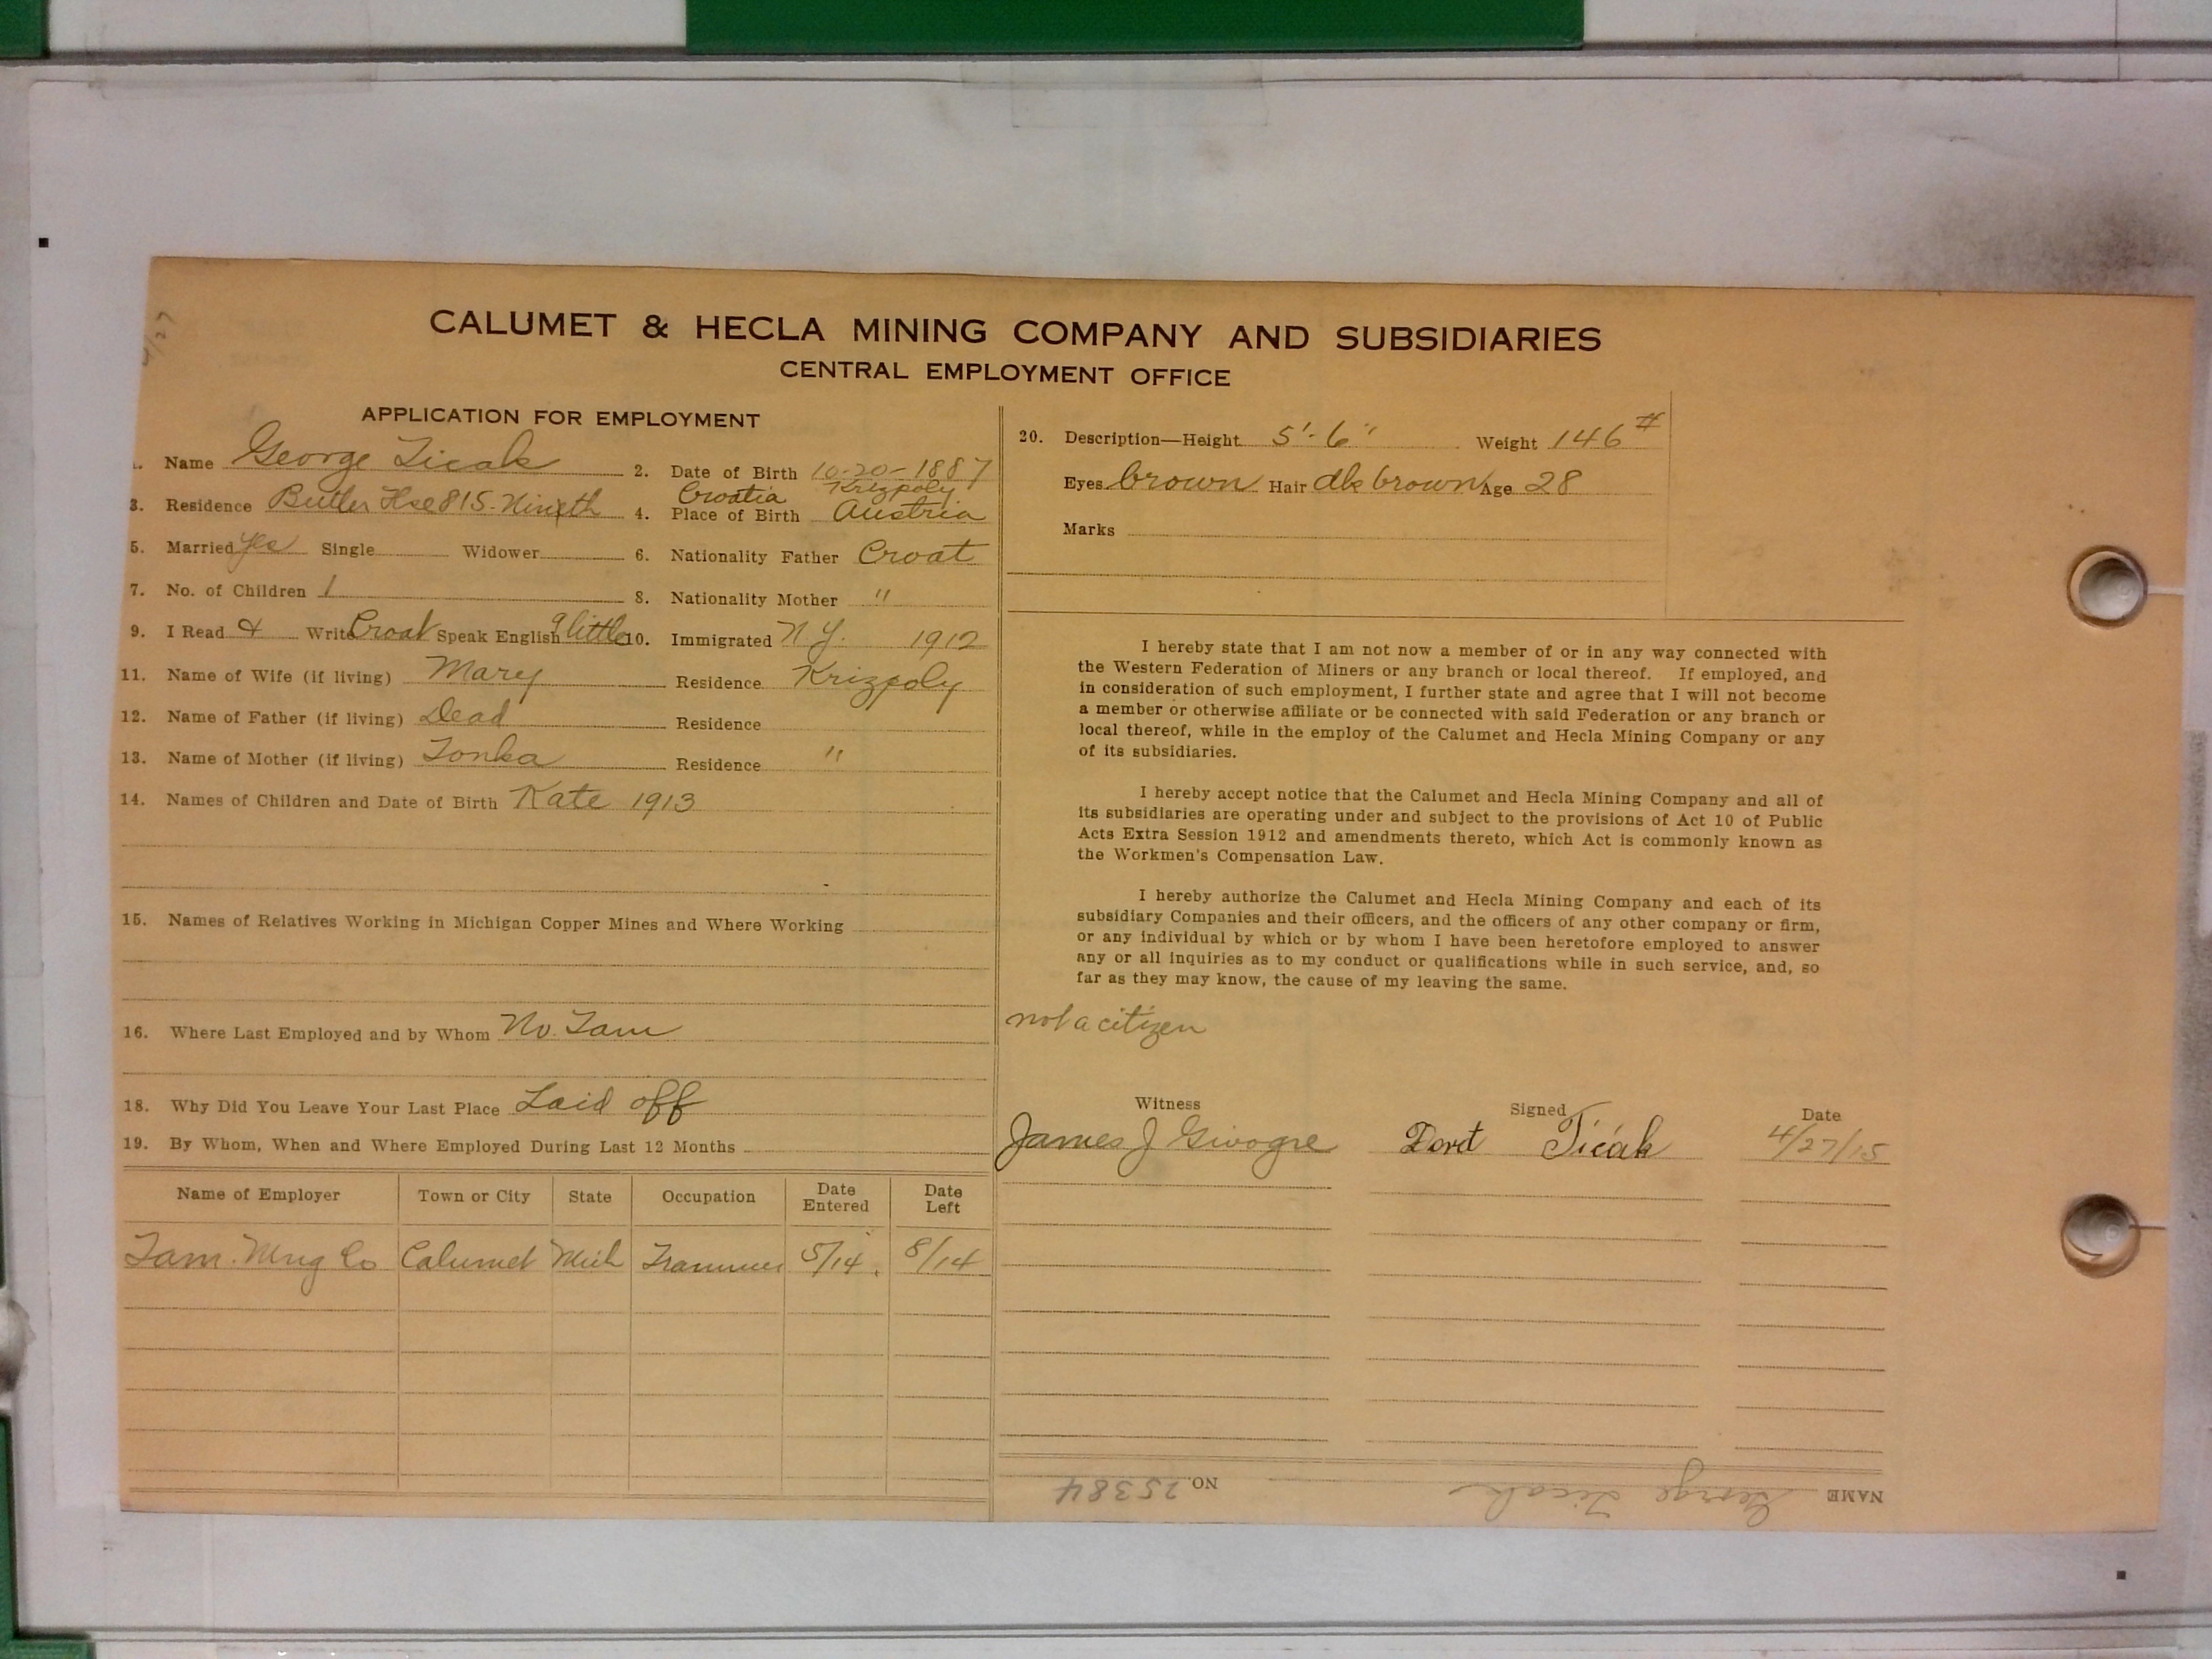 4/27
CALUMET & HECLA MINING COMPANY AND SUBSIDIARIES
CENTRAL EMPLOYMENT OFFICE
APPLICATION FOR EMPLOYMENT
1. Name George Ticak 2. Date of Birth 10-20-1887
Croatia Krizpoly
3. Residence Butler Hse 815-Nineth 4. Place of Birth Austria
5. Married yes Single Widower 6. Nationality Father Croat
7. No. of Children 1 8. Nationality Mother "
9. I Read & Write Croat Speak English a little 10. Immigrated N.Y. 1912
11. Name of Wife (if living) Mary Residence Krizpoly
12. Name of Father (if living) Dead Residence
13. Name of Mother (if living) Tonka Residence "
14. Names of Children and Date of Birth Kate 1913
15. Names of Relatives Working in Michigan Copper Mines and Where Working
16. Where Last Employed and by Whom No. Tam
18. Why Did You Leave Your Last Place Laid off
19. By Whom, When and Where Employed During Last 12 Months
Name of Employer Town or City State Occupation Date Entered Date Left
Tam. Mng Co Calumet Mich Trammer 5/14 8/14
20. Description—Height 5'-6" Weight 146#
Eyes brown Hair dk brown Age 28
Marks
I hereby state that I am not now a member of or in any way connected with
the Western Federation of Miners or any branch or local thereof. If employed, and
in consideration of such employment, I further state and agree that I will not become
a member or otherwise affiliate or be connected with said Federation or any branch or
local thereof, while in the employ of the Calumet and Hecla Mining Company or any
of its subsidiaries.
I hereby accept notice that the Calumet and Hecla Mining Company and all of
its subsidiaries are operating under and subject to the provisions of Act 10 of Public
Acts Extra Session 1912 and amendments thereto, which Act is commonly known as
the Workmen's Compensation Law.
I hereby authorize the Calumet and Hecla Mining Company and each of its
subsidiary Companies and their officers, and the officers of any other company or firm,
or any individual by which or by whom I have been heretofore employed to answer
any or all inquiries as to my conduct or qualifications while in such service, and, so
far as they may know, the cause of my leaving the same.
not a citizen
Witness Signed Date
James J Ticak 4/27/15
NAME George Ticak NO. 25384